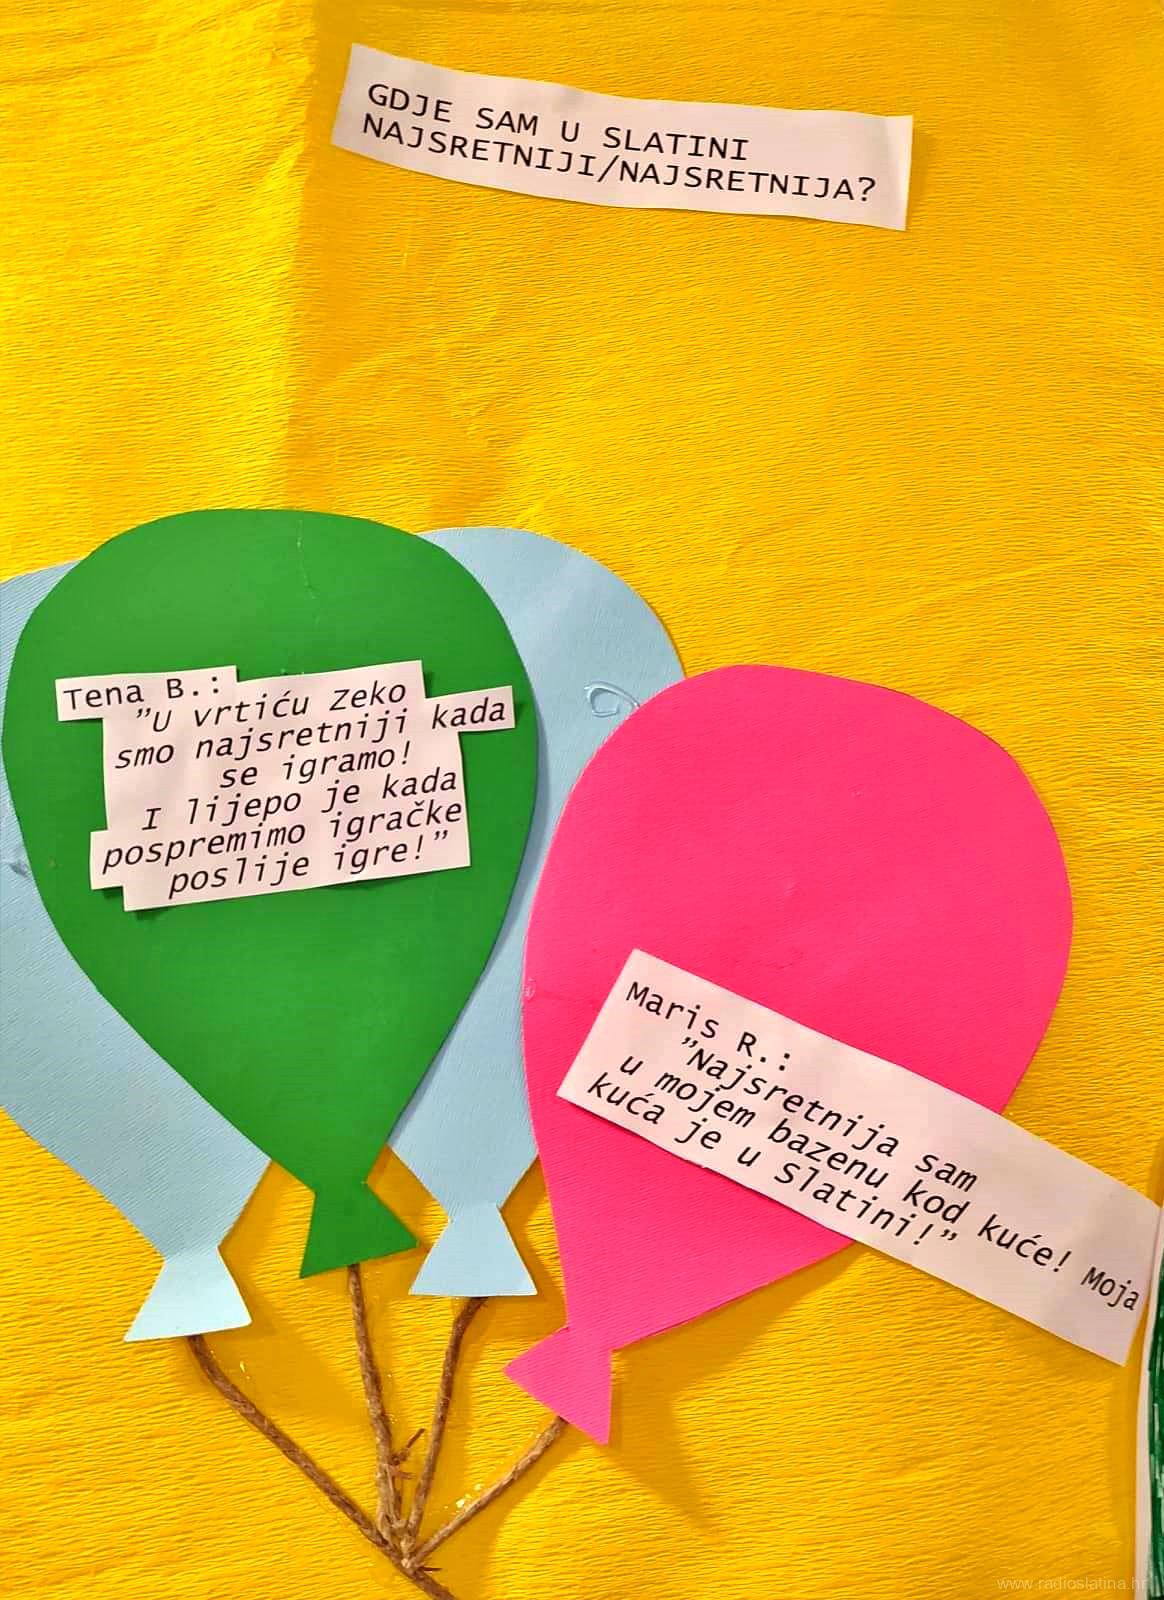 GDJE SAM U SLATINI
NAJSRETNIJI/NAJSRETNIJA?
Tena B.:
”U vrtiću Zeko
smo najsretniji kada
se igramo!
I lijepo je kada
pospremimo igračke
poslije igre!”
Maris R.:
”Najsretnija sam
u mojem bazenu kod kuće! Moja
kuća je u Slatini!”
www.radioslatina.hr